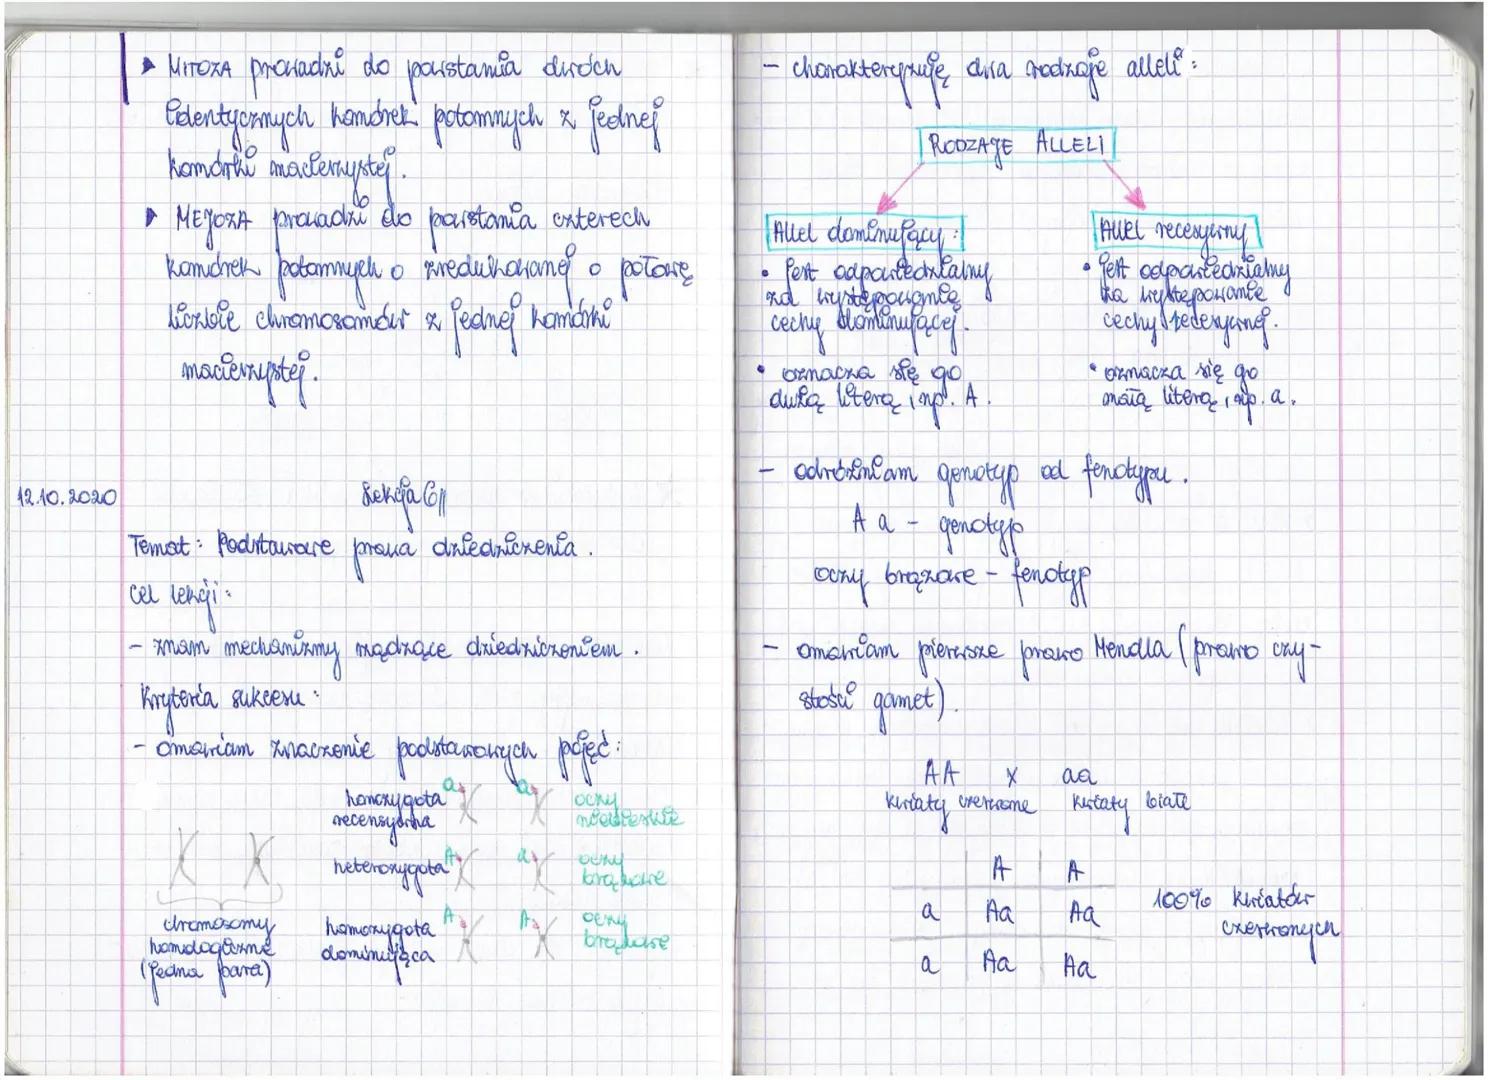 ▸ MITOZA prowadzi do powstania dwóch
identycznych komórek potomnych z jednej
komórki macierzystej.
▸ MEJOZA prowadzi do powstania czterech
komórek potomnych o zredukowanej o połowę
liczbie chromosomów z jednej komórki
macierzystej.
12.10.2020
Lekcja 6
Temat: Podstawowe prawa dziedziczenia.
Cel lekcji:
- znam mechanizmy rządzące dziedziczeniem.
Kryteria sukcesu:
- omawiam znaczenie podstawowych pojęć:
homozygota a a oczy
recensywna niebieskie
heterozygota A a oczy
brązowe
homozygota A A oczy
dominująca brązowe
chromosomy
homologiczne
(jedna para)
- charakteryzuję dwa rodzaje alleli:
RODZAJE ALLELI
Allel dominujący:
• jest odpowiedzialny
za występowanie
cechy dominującej.
• oznacza się go
dużą literą, np. A.
Allel recesywny
• jest odpowiedzialny
za występowanie
cechy recesywnej.
• oznacza się go
małą literą, np. a.
- odróżniam genotyp od fenotypu.
A a - genotyp
oczy brązowe - fenotyp
- omawiam pierwsze prawo Mendla (prawo czy-
stości gamet).
AA x aa
kwiaty czerwone kwiaty białe
A A
a Aa Aa
a Aa Aa
100% kwiatów
czerwonych